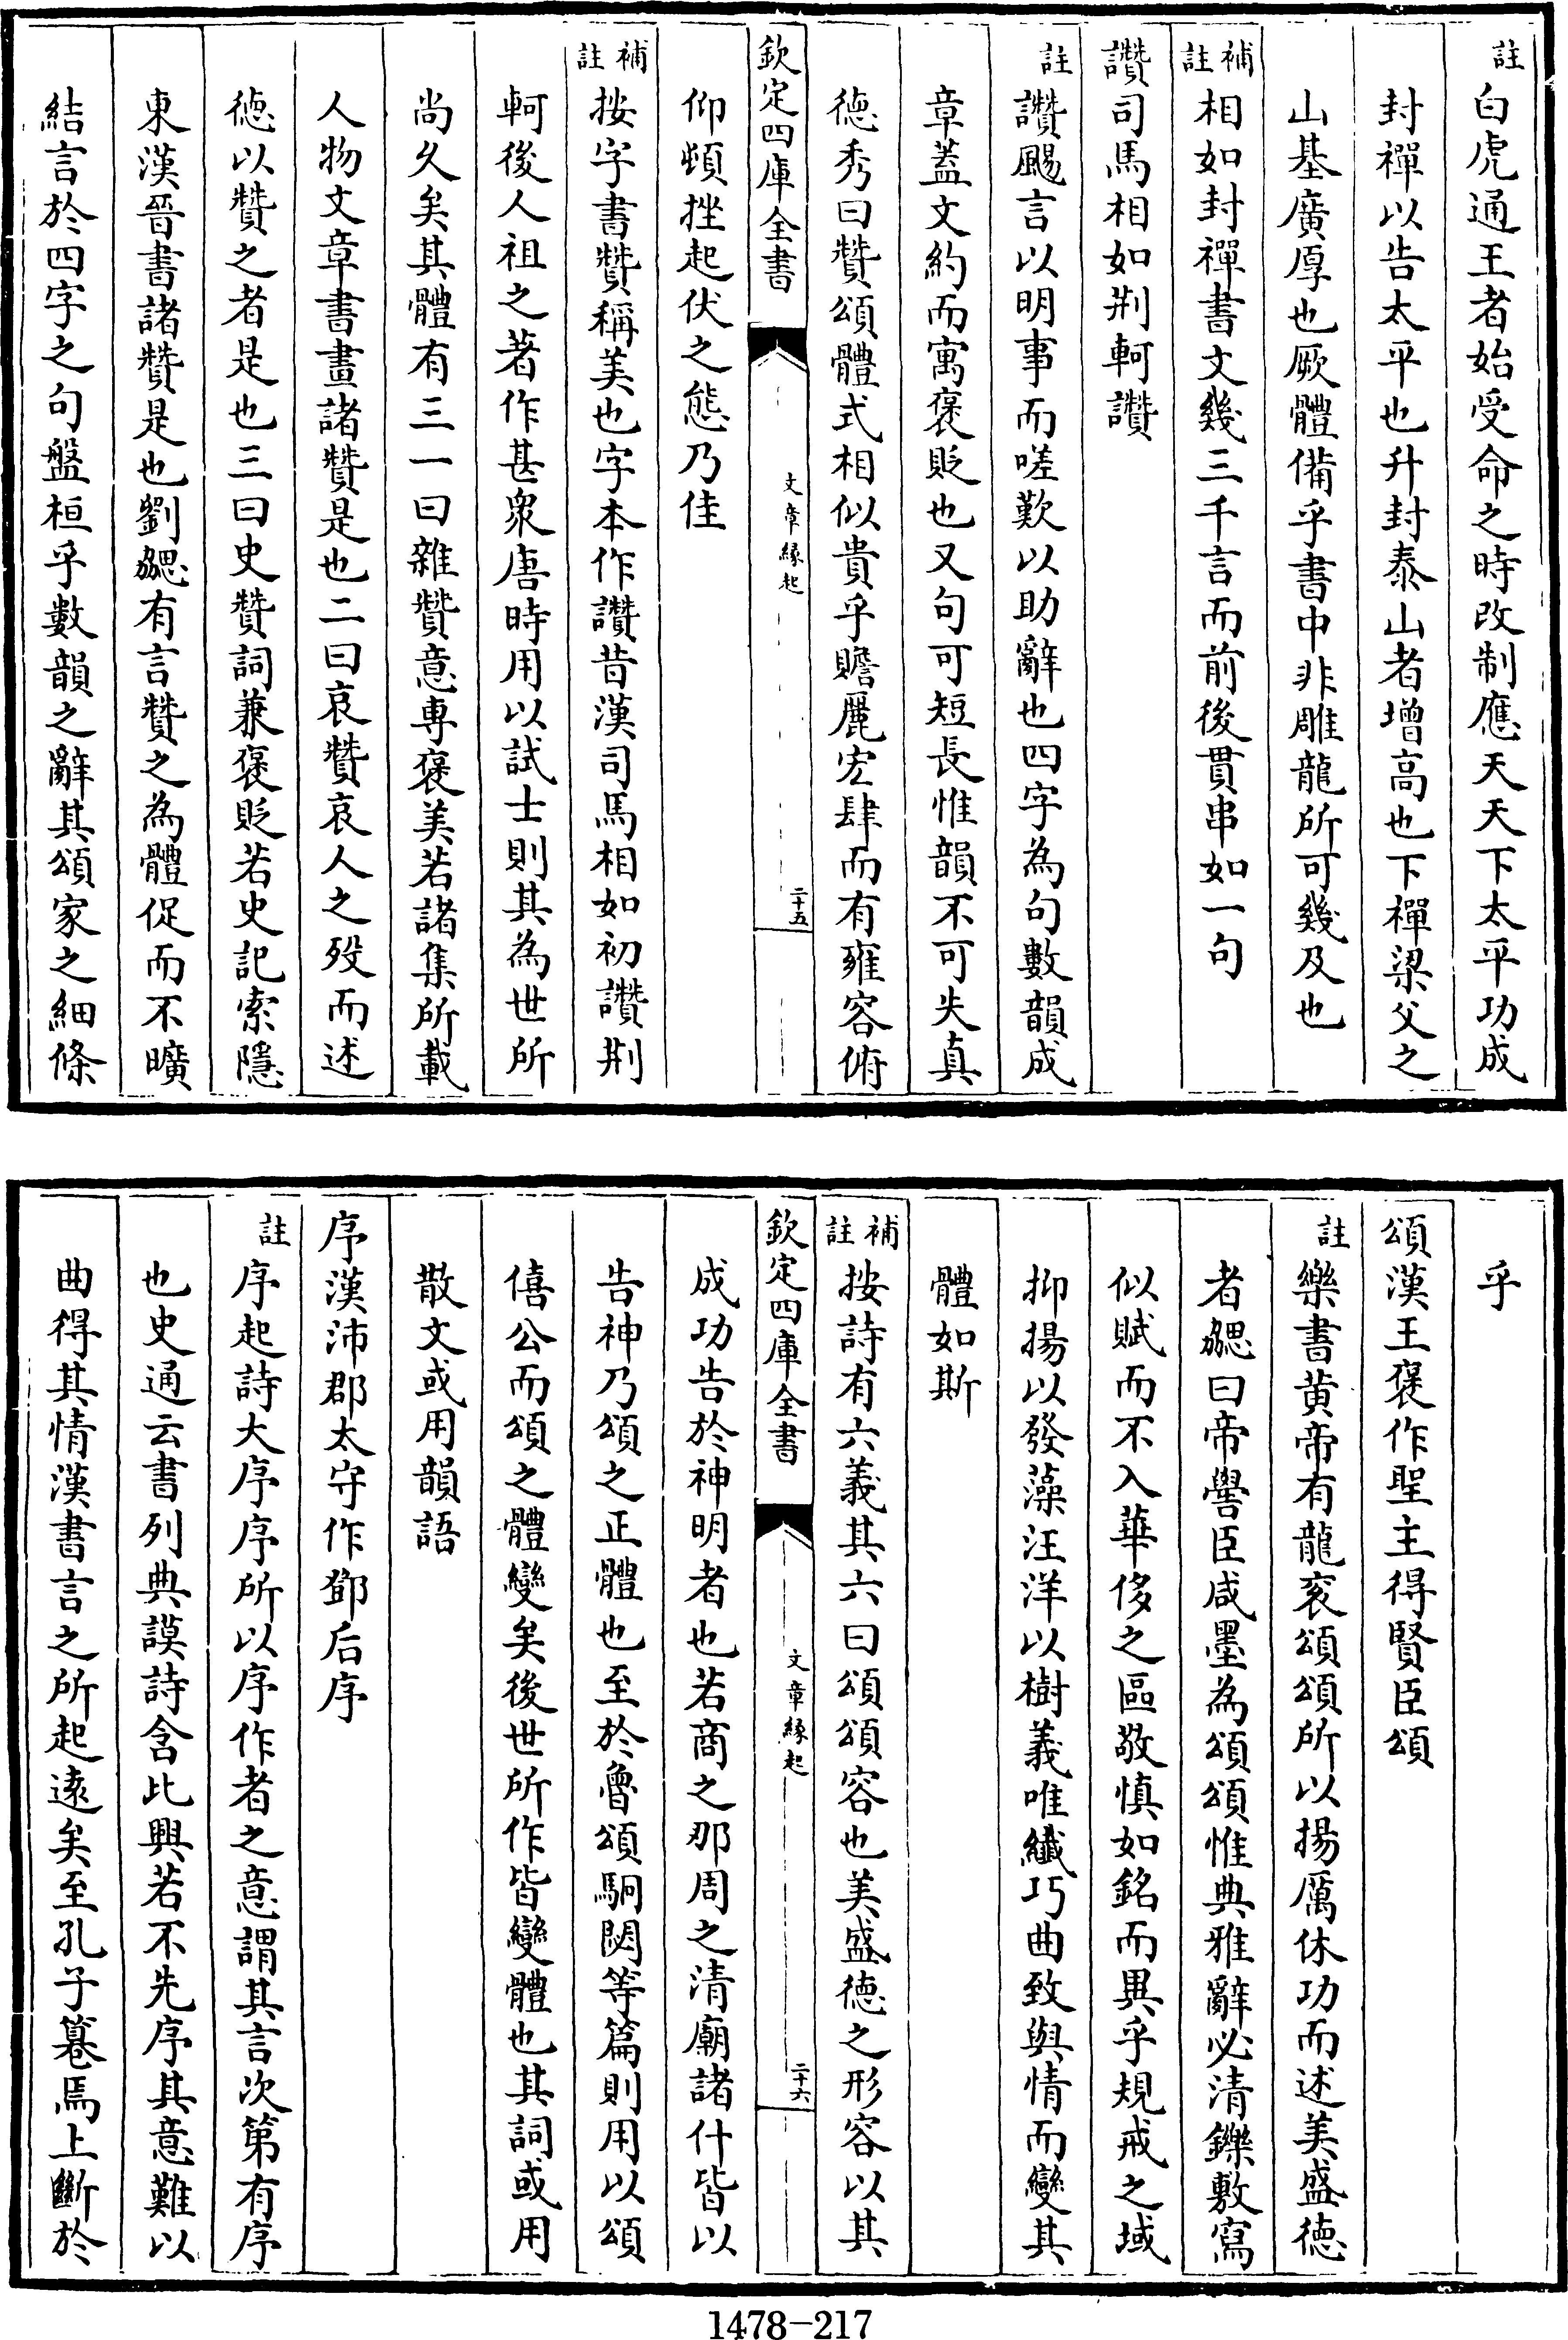 註白虎通王者始受命之時改制應天天下太平功成
封禪以告太平也升封泰山者增高也下禪梁父之
山基廣厚也厥體備乎書中非雕龍所可幾及也
補註相如封禪書文幾三千言而前後貫串如一句
讚司馬相如荆軻讚
註讚颺言以明事而嗟歎以助辭也四字為句數韻成
章蓋文約而寓褒貶也又句可短長惟韻不可失真
德秀曰贊頌體式相似貴乎贍麗宏肆而有雍容俯
欽定四庫全書 文章緣起 二十五
仰頓挫起伏之態乃佳
補註按字書贊稱美也字本作讚昔漢司馬相如初讚荆
軻後人祖之著作甚衆唐時用以試士則其為世所
尚久矣其體有三一曰雜贊意専褒美若諸集所載
人物文章書畫諸贊是也二曰哀贊哀人之殁而述
德以贊之者是也三曰史贊詞兼褒貶若史記索隱
東漢晉書諸贊是也劉勰有言贊之為體促而不曠
結言於四字之句盤桓乎數韻之辭其頌家之細條
乎
頌漢王褒作聖主得賢臣頌
註樂書黄帝有龍衮頌頌所以揚厲休功而述美盛德
者勰曰帝嚳臣咸墨為頌頌惟典雅辭必清鑠敷寫
似賦而不入華侈之區敬慎如銘而異乎規戒之域
抑揚以發藻汪洋以樹義唯纖巧曲致與情而變其
體如斯
補註按詩有六義其六曰頌頌容也美盛德之形容以其
欽定四庫全書 文章緣起 二十六
成功告於神明者也若商之那周之清廟諸什皆以
告神乃頌之正體也至於魯頌駉閟等篇則用以頌
僖公而頌之體變矣後世所作皆變體也其詞或用
散文或用韻語
序漢沛郡太守作鄧后序
註序起詩大序序所以序作者之意謂其言次第有序
也史通云書列典謨詩含比興若不先序其意難以
曲得其情漢書言之所起遠矣至孔子篹焉上斷於
1478-217